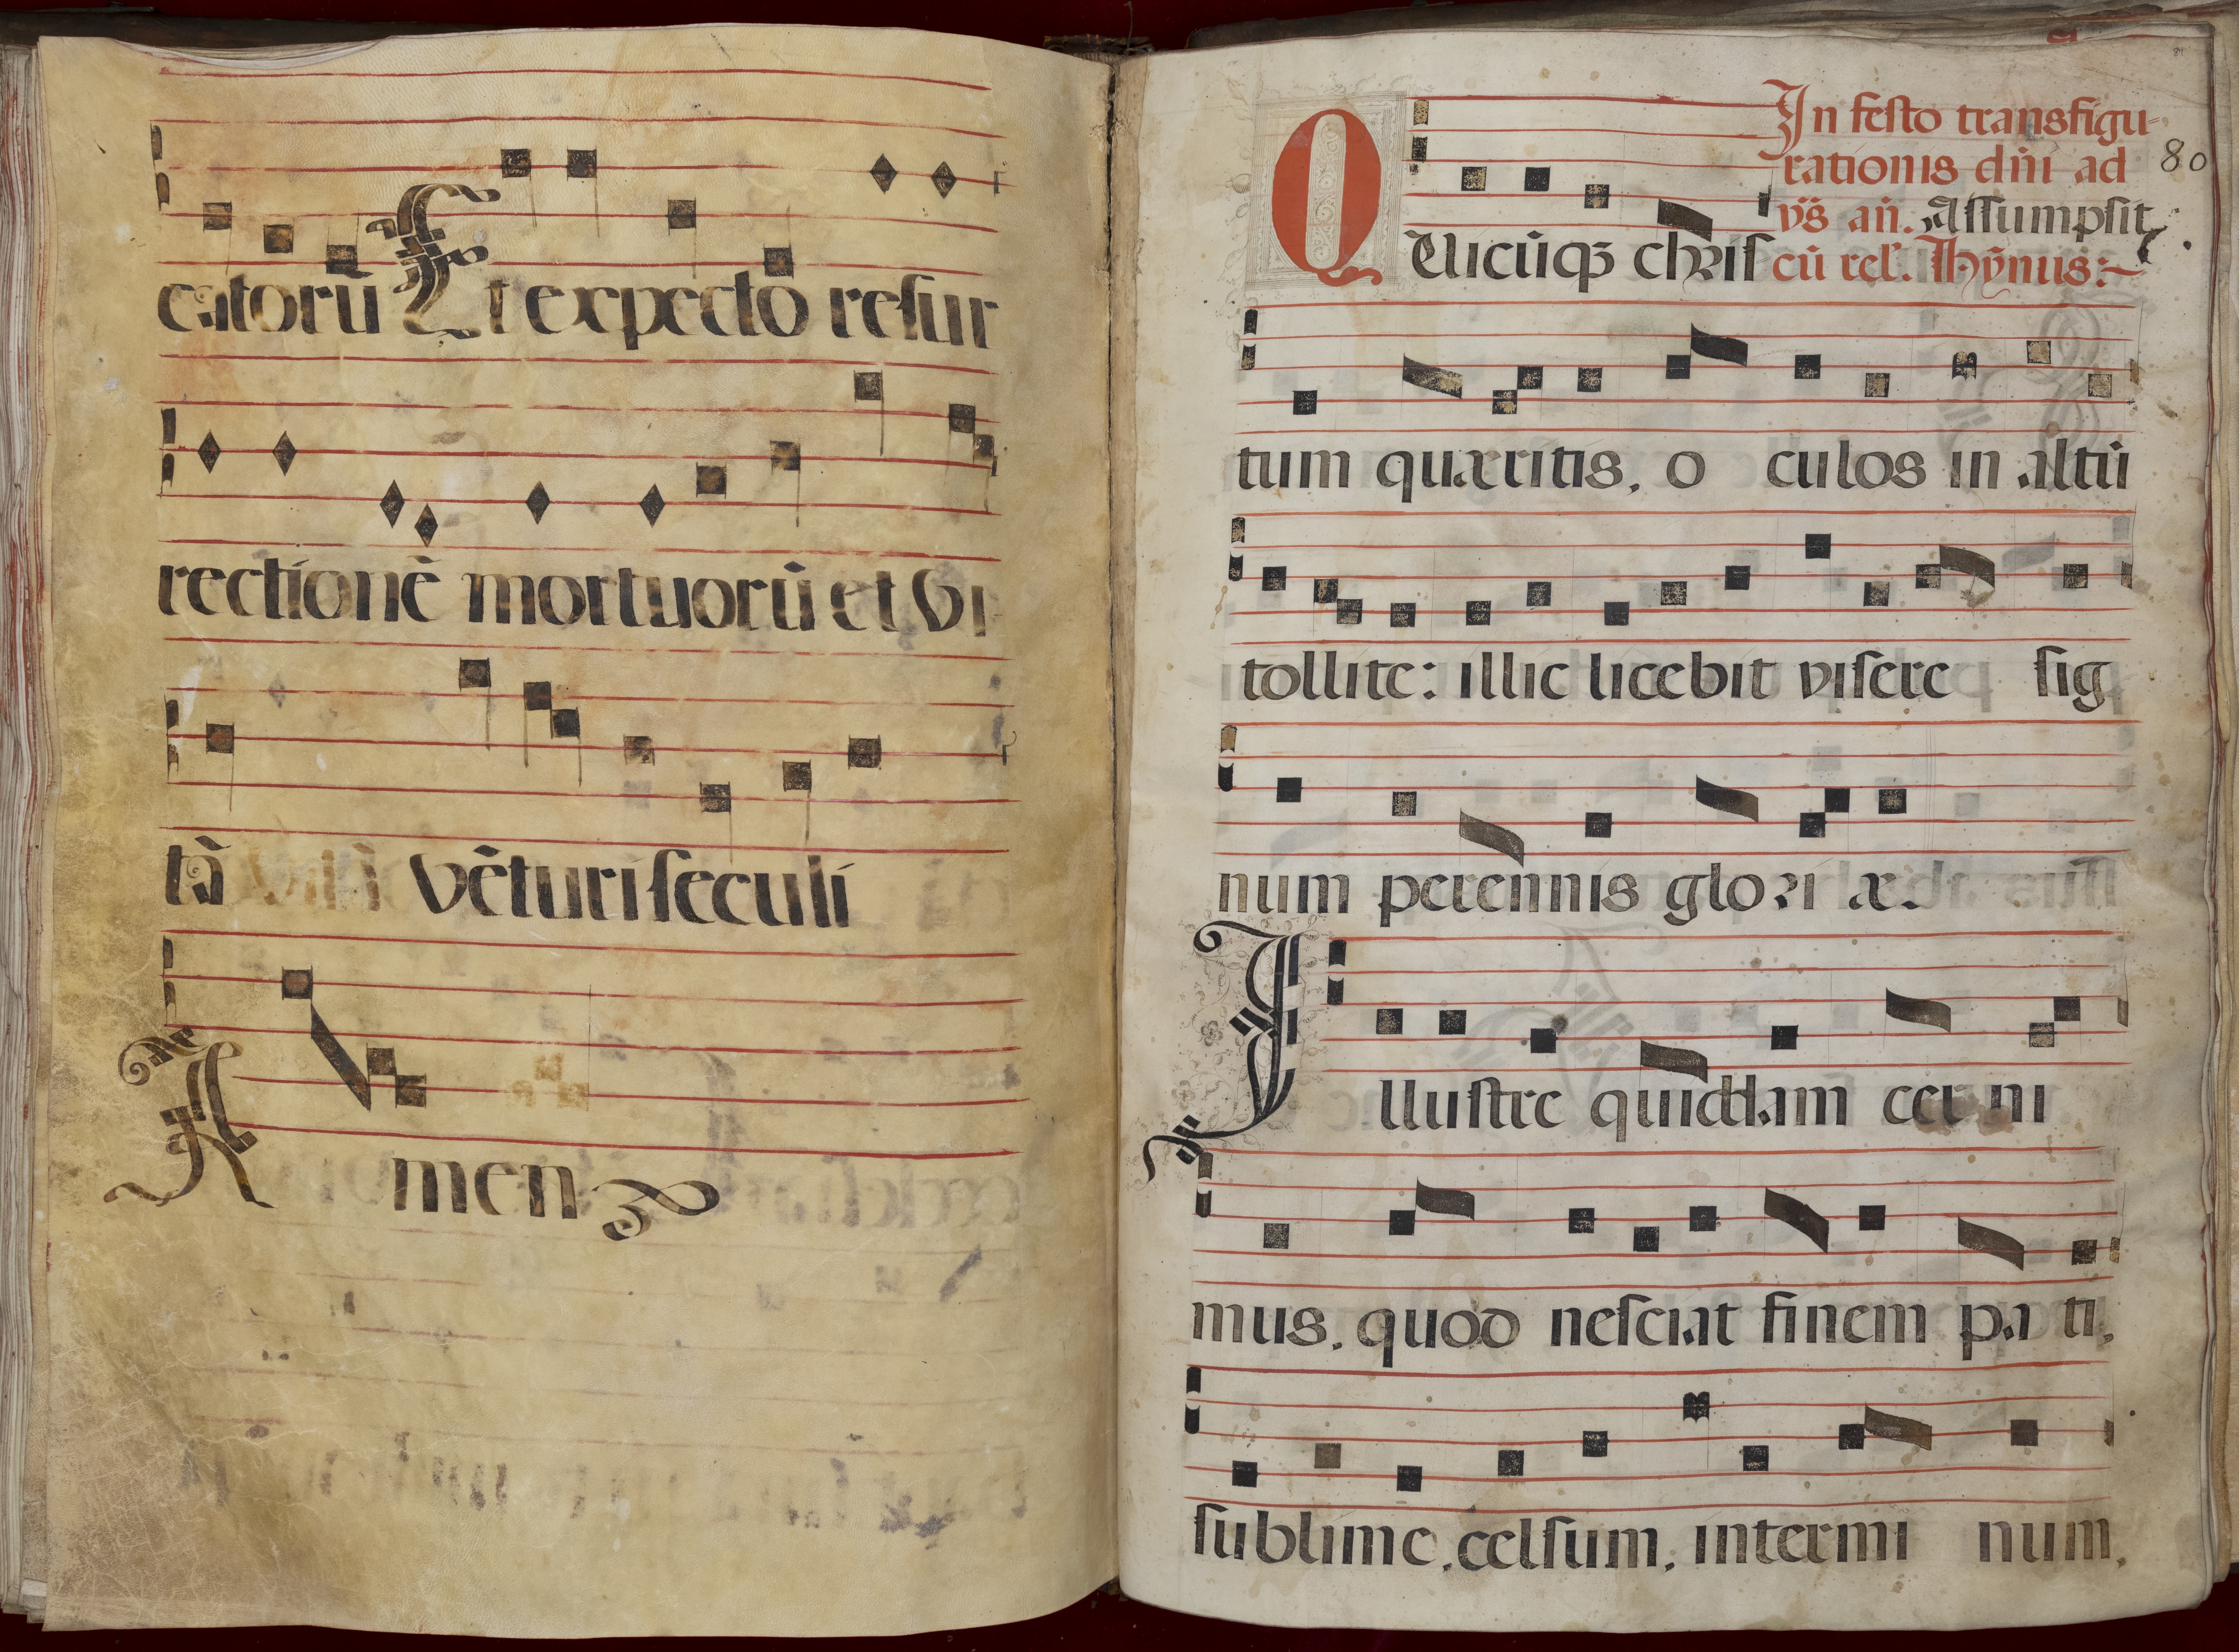 catorū Et expecto resur
rectionē mortuorū et vi
tā vēturi seculi
Amen
In festo transfigu-
rationis dn̄i ad
80
vs̄ an̄. Assumpsit
cū rel'. Hȳnus:~
Quicūqꝫ chris
tum quæritis, o culos in altū
tollite: illic licebit visere sig
num perennis glori æ.
Illustre quiddam cer ni
mus, quod nesciat finem pa ti,
sublime, celsum, intermi num,